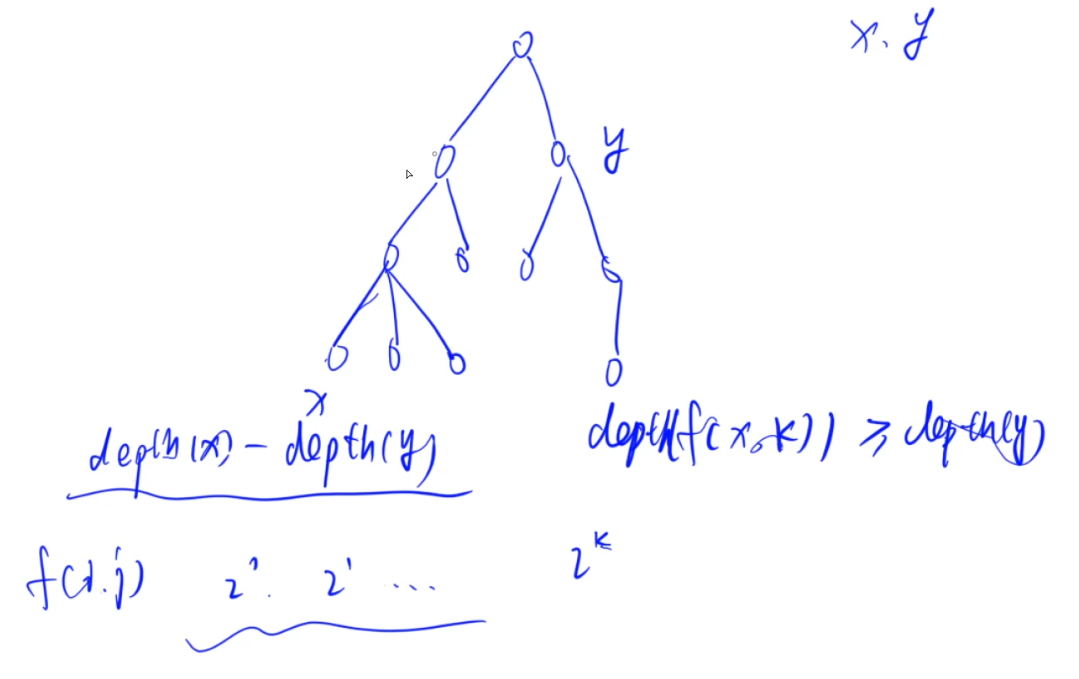 x, y
y
x
depth(x) - depth(y)
depth(f(x,k)) ≥ depth(y)
f(i,j) 2⁰. 2¹ ... 2ᵏ